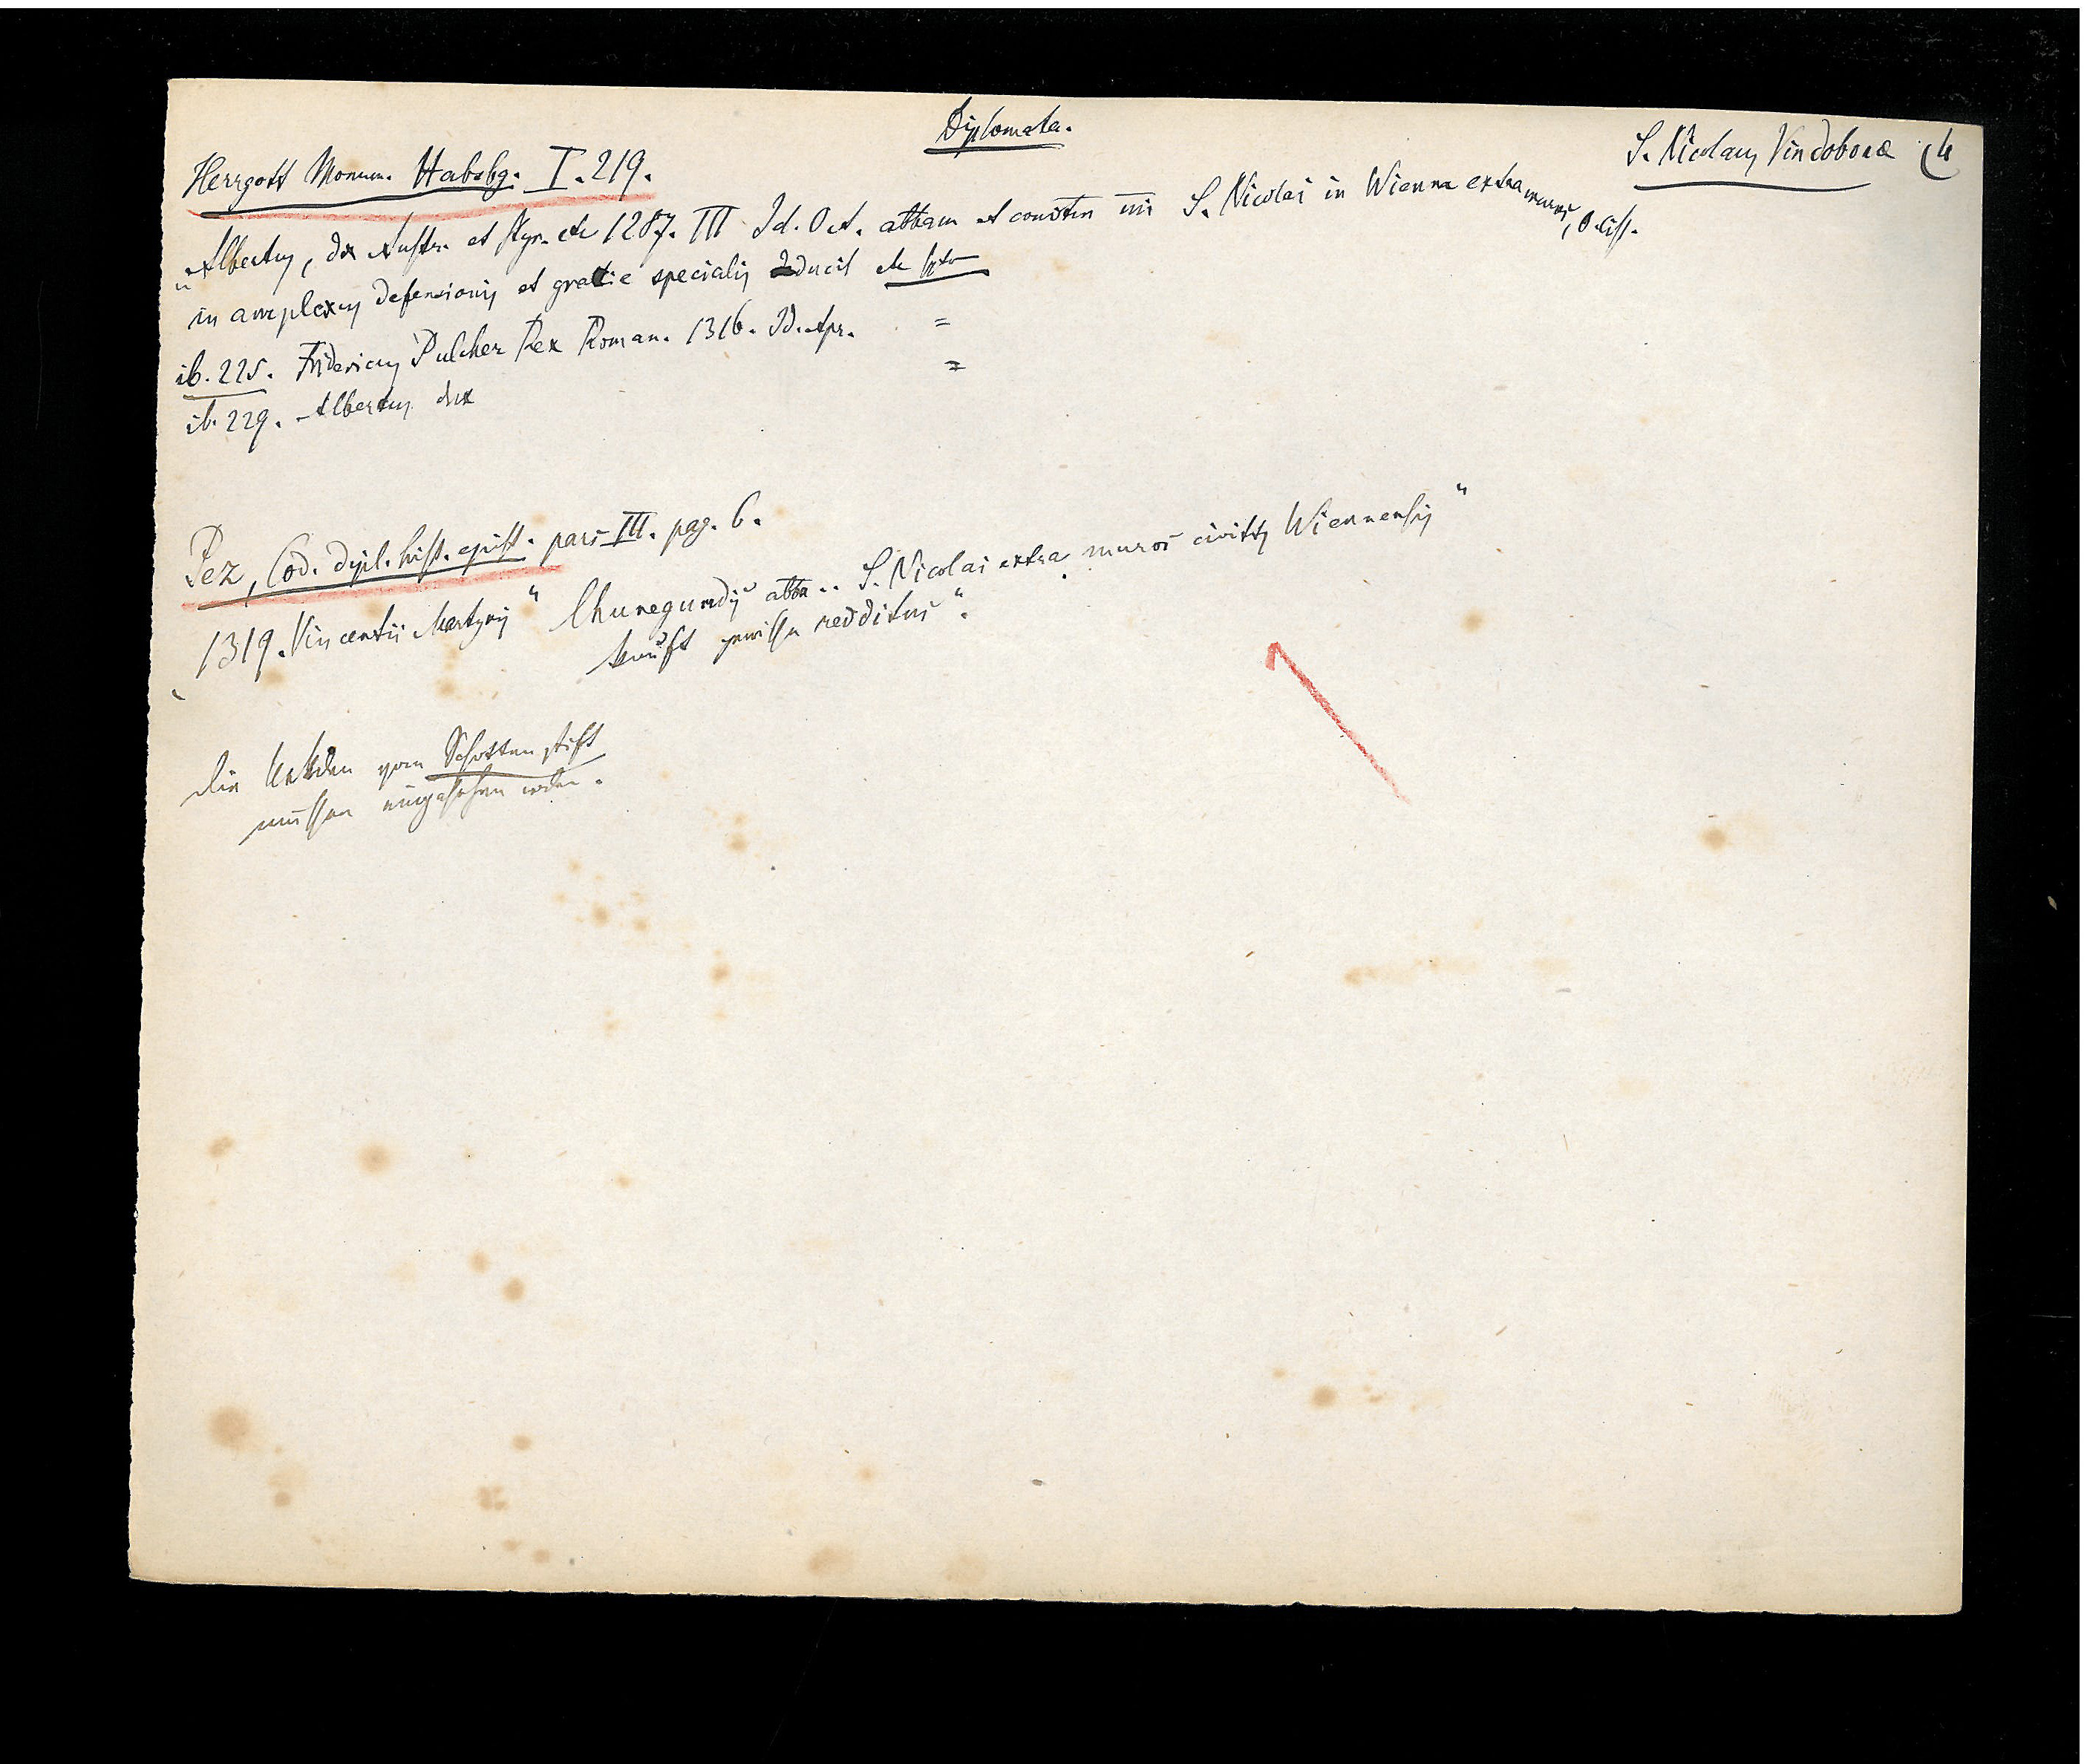 Diplomata.
S. Nicolaus Vindobonæ (4
Herrgott Monum. Habsbg. I. 219.
„Albertus, dx Austr. et Styr. etc 1287. III Id. Oct. abbam et conventum S. Nicolai in Wienna extra muros, O. Cist.
in amplexus defensionis et gratie specialis ducit etc
ib. 225. Fridericus Pulcher Rex Roman. 1316. Id. Apr. =
ib. 229. Albertus dux =
Pez, Cod. dipl. hist. epist. pars III. pag. 6.
1319. Vincentii Martyris " Chunegundis abba .. S. Nicolai extra muros civitts Wiennensis "
kauft gewisse redditus ".
Die Urkden vom Schottenstift
müssen eingesehen werden.